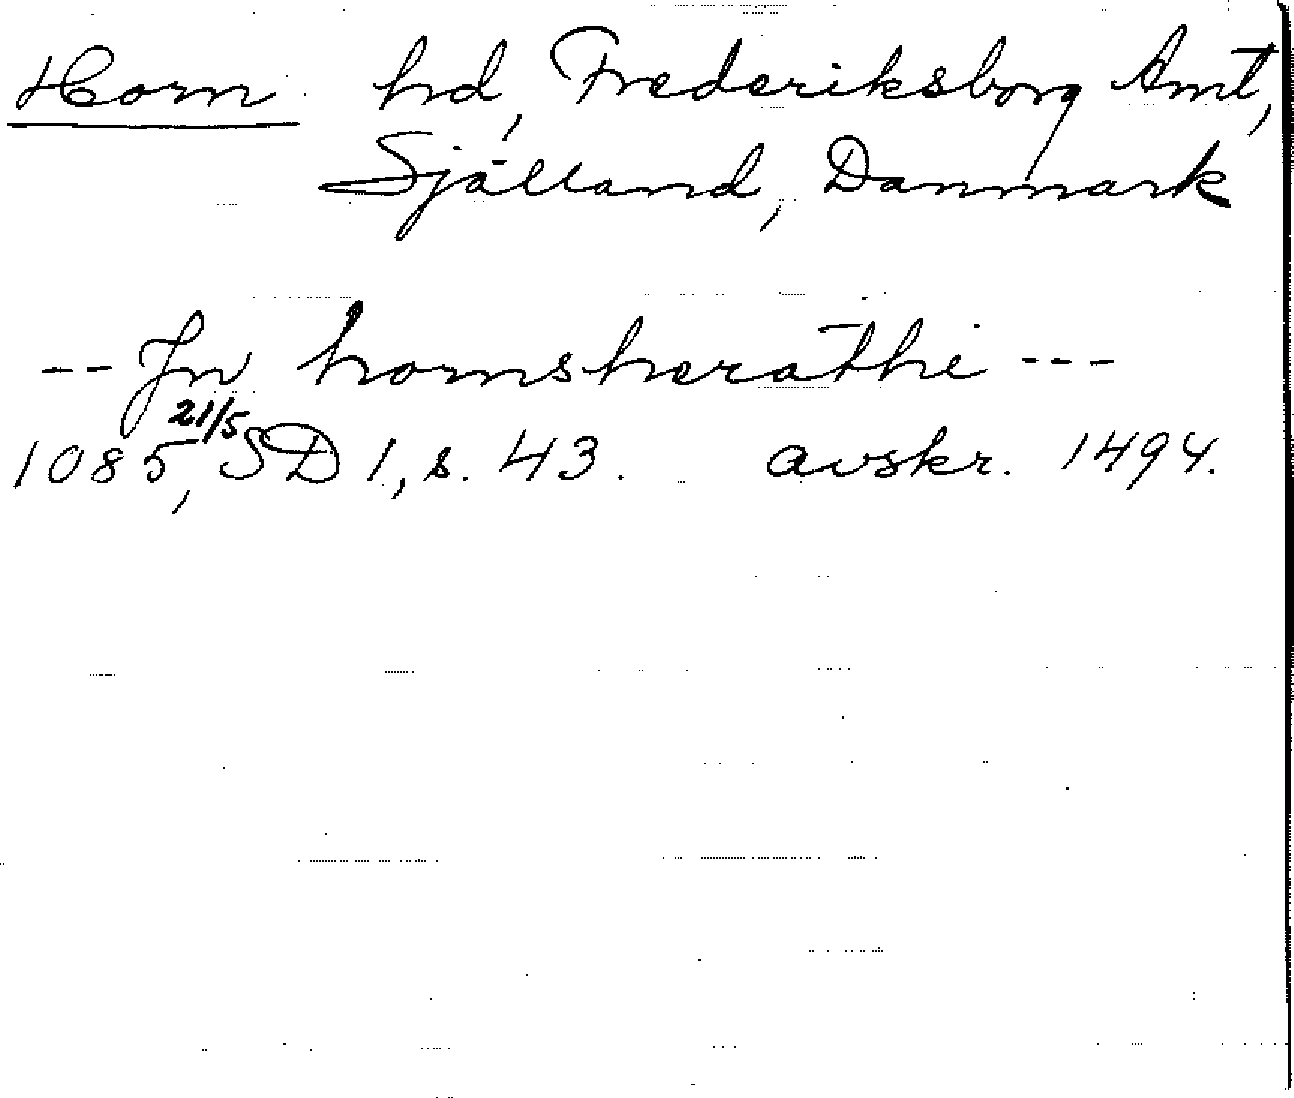 Horn hd, Frederiksborg Amt,
Själland, Danmark
-- Jn hornsherathe ---
1085 21/5, SD 1, s. 43. avskr. 1494.